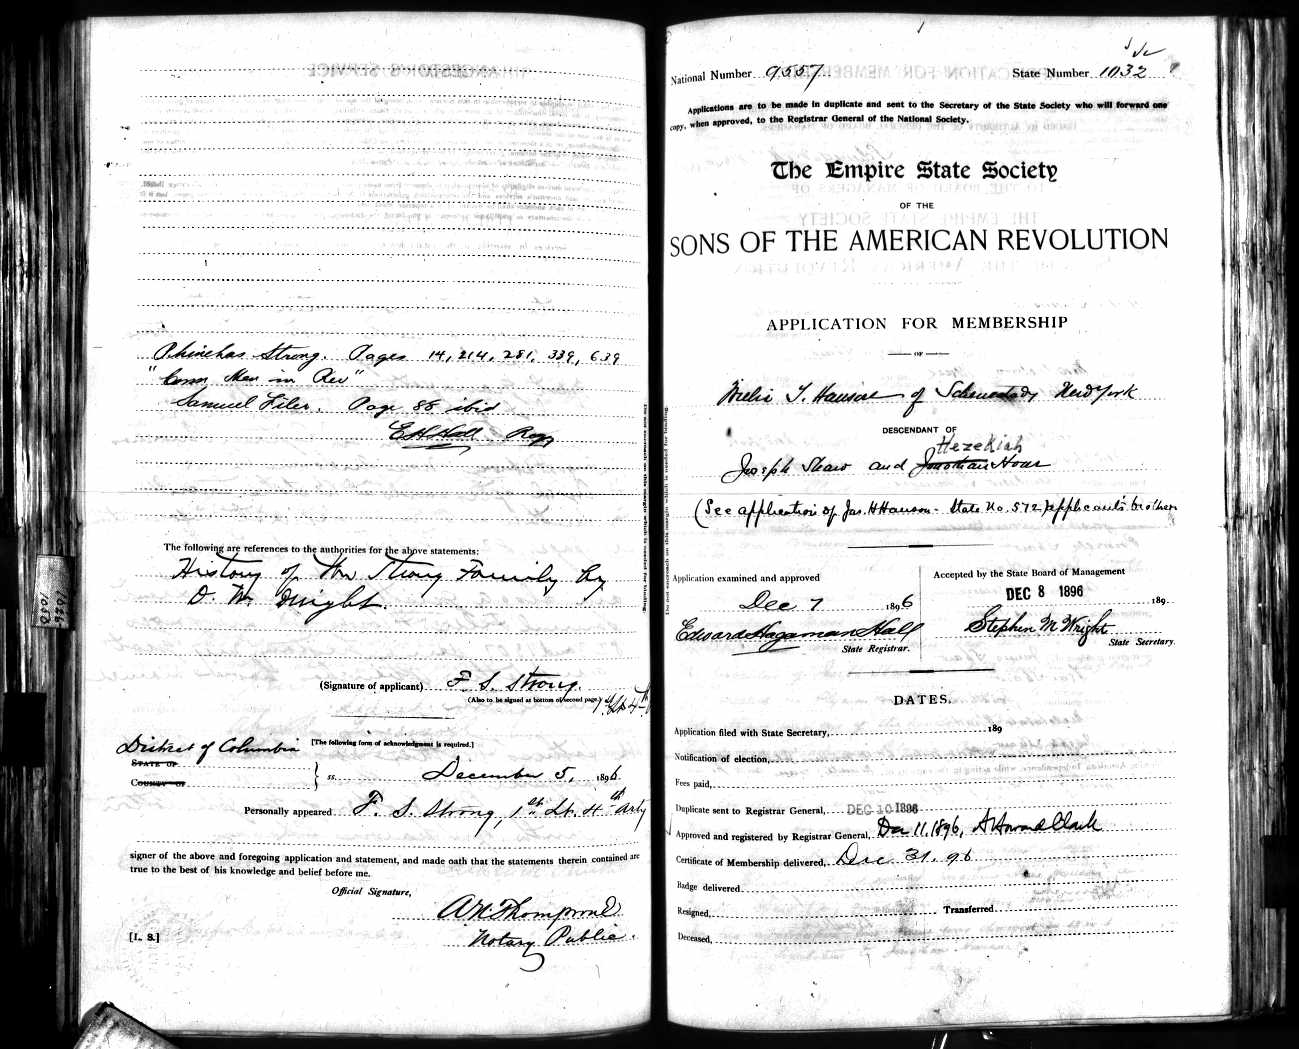 Phinehas Strong. Pages 14, 214, 281, 339, 639
"Conn Men in Rev"
Samuel Filer. Page 88 ibid
E H Hall Regr
The following are references to the authorities for the above statements:
History of Strong Family by
D. W. Dwight.
(Signature of applicant) F. S. Strong.
(Also to be signed at bottom of second page.) 1st Lt 4th
District of Columbia [The following form of acknowledgment is required.]
STATE OF
COUNTY OF } ss. December 5, 1896.
Personally appeared F. S. Strong, 1st Lt. 4th Arty
signer of the above and foregoing application and statement, and made oath that the statements therein contained are
true to the best of his knowledge and belief before me.
Official Signature,
Notary Public.
[L. S.]
National Number 9557. State Number 1032
Applications are to be made in duplicate and sent to the Secretary of the State Society who will forward one
copy, when approved, to the Registrar General of the National Society.
The Empire State Society
OF THE
SONS OF THE AMERICAN REVOLUTION
APPLICATION FOR MEMBERSHIP
OF
Willis T. Hanson of Schenectady New York
DESCENDANT OF
Hezekiah
Joseph Shaw and Jonathan Hoar
(See application of Jas. H Hanson - State No. 572) applicant's brother
Application examined and approved
Dec 7 1896
Edward Hagaman Hall
State Registrar.
Accepted by the State Board of Management
DEC 8 1896 189
Stephen M Wright
State Secretary.
DATES.
Application filed with State Secretary, 189
Notification of election,
Fees paid,
Duplicate sent to Registrar General, DEC 10 1896
Approved and registered by Registrar General, Dec 11, 1896, A Howard Clark
Certificate of Membership delivered, Dec. 31. 96
Badge delivered
Resigned, Transferred
Deceased,